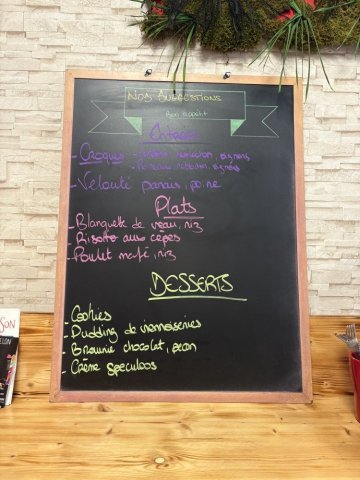 Nos Suggestions
Bon appétit
Entrées
- Croques - reblochon, oignons
- oignons
- Velouté panais, poire
Plats
- Blanquette de veau, riz
- Risotto aux cèpes
- Poulet mafé, riz
DESSERTS
- Cookies
- Pudding de viennoiseries
- Brownie chocolat, pecan
- Crème speculoos
SON
ELON